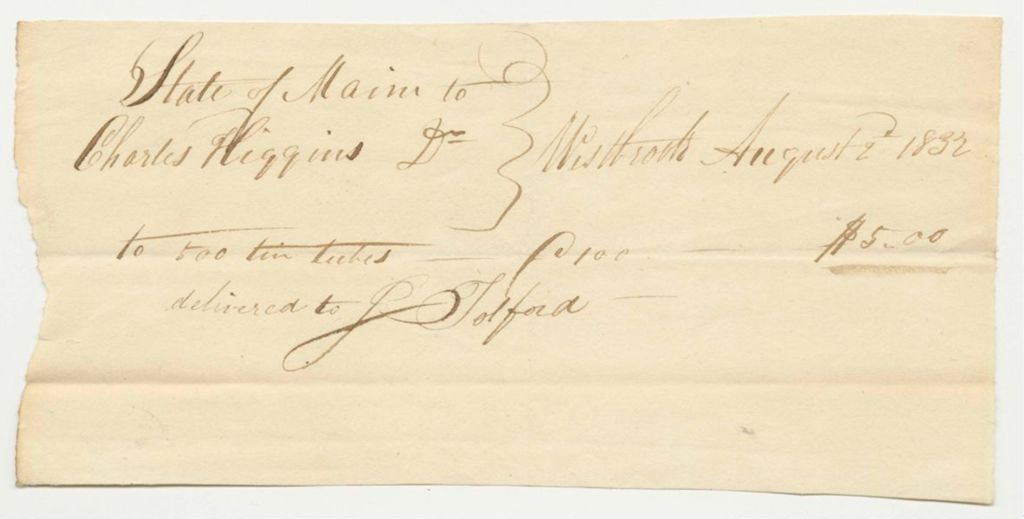 State of Maine to
Charles Higgins Dr
Westbrook August 2d 1832
to 500 tin tubes — 100 — $5.00
delivered to J Tolford —